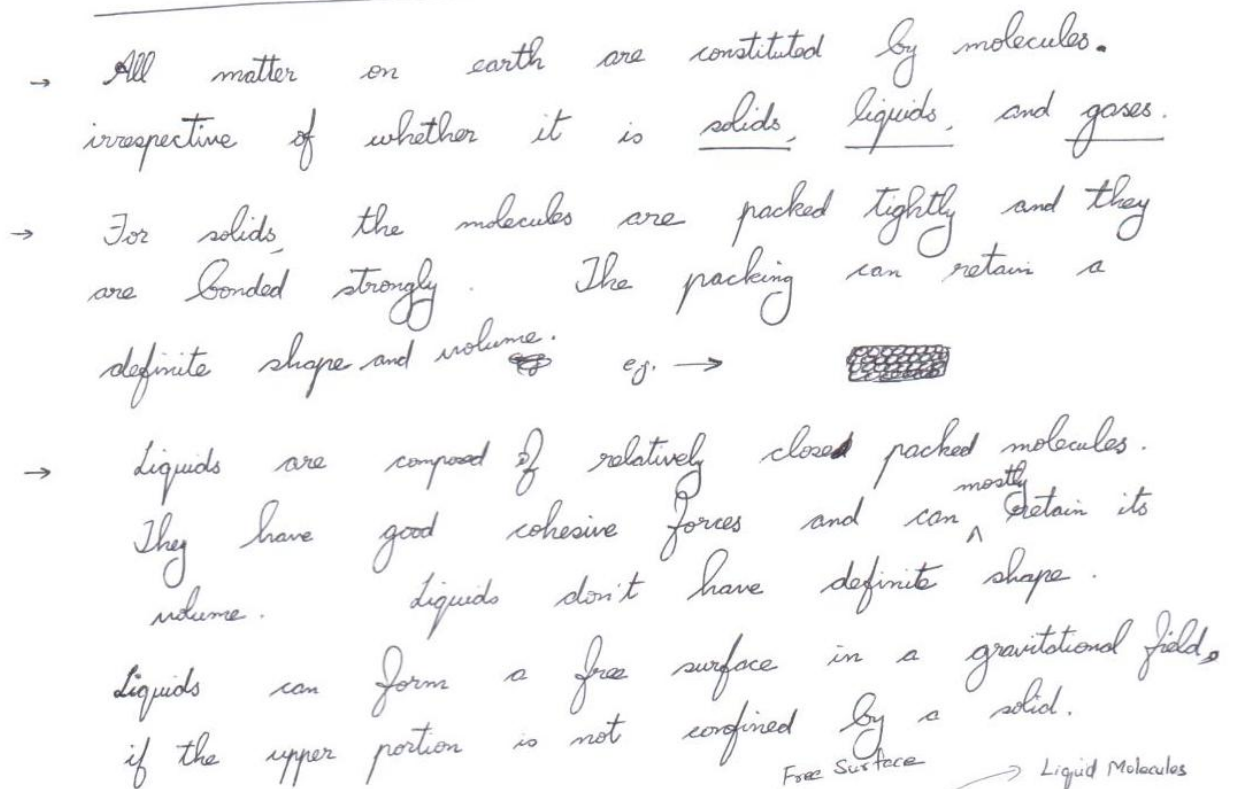 → All matter on earth are constituted by molecules.
irrespective of whether it is solids, liquids, and gases.
→ For solids, the molecules are packed tightly and they
are bonded strongly. The packing can retain a
definite shape and volume. eg. →
→ Liquids are composed of relatively closed packed molecules.
They have good cohesive forces and can mostly retain its
volume. Liquids don't have definite shape.
Liquids can form a free surface in a gravitational field,
if the upper portion is not confined by a solid.
Free Surface → Liquid Molecules